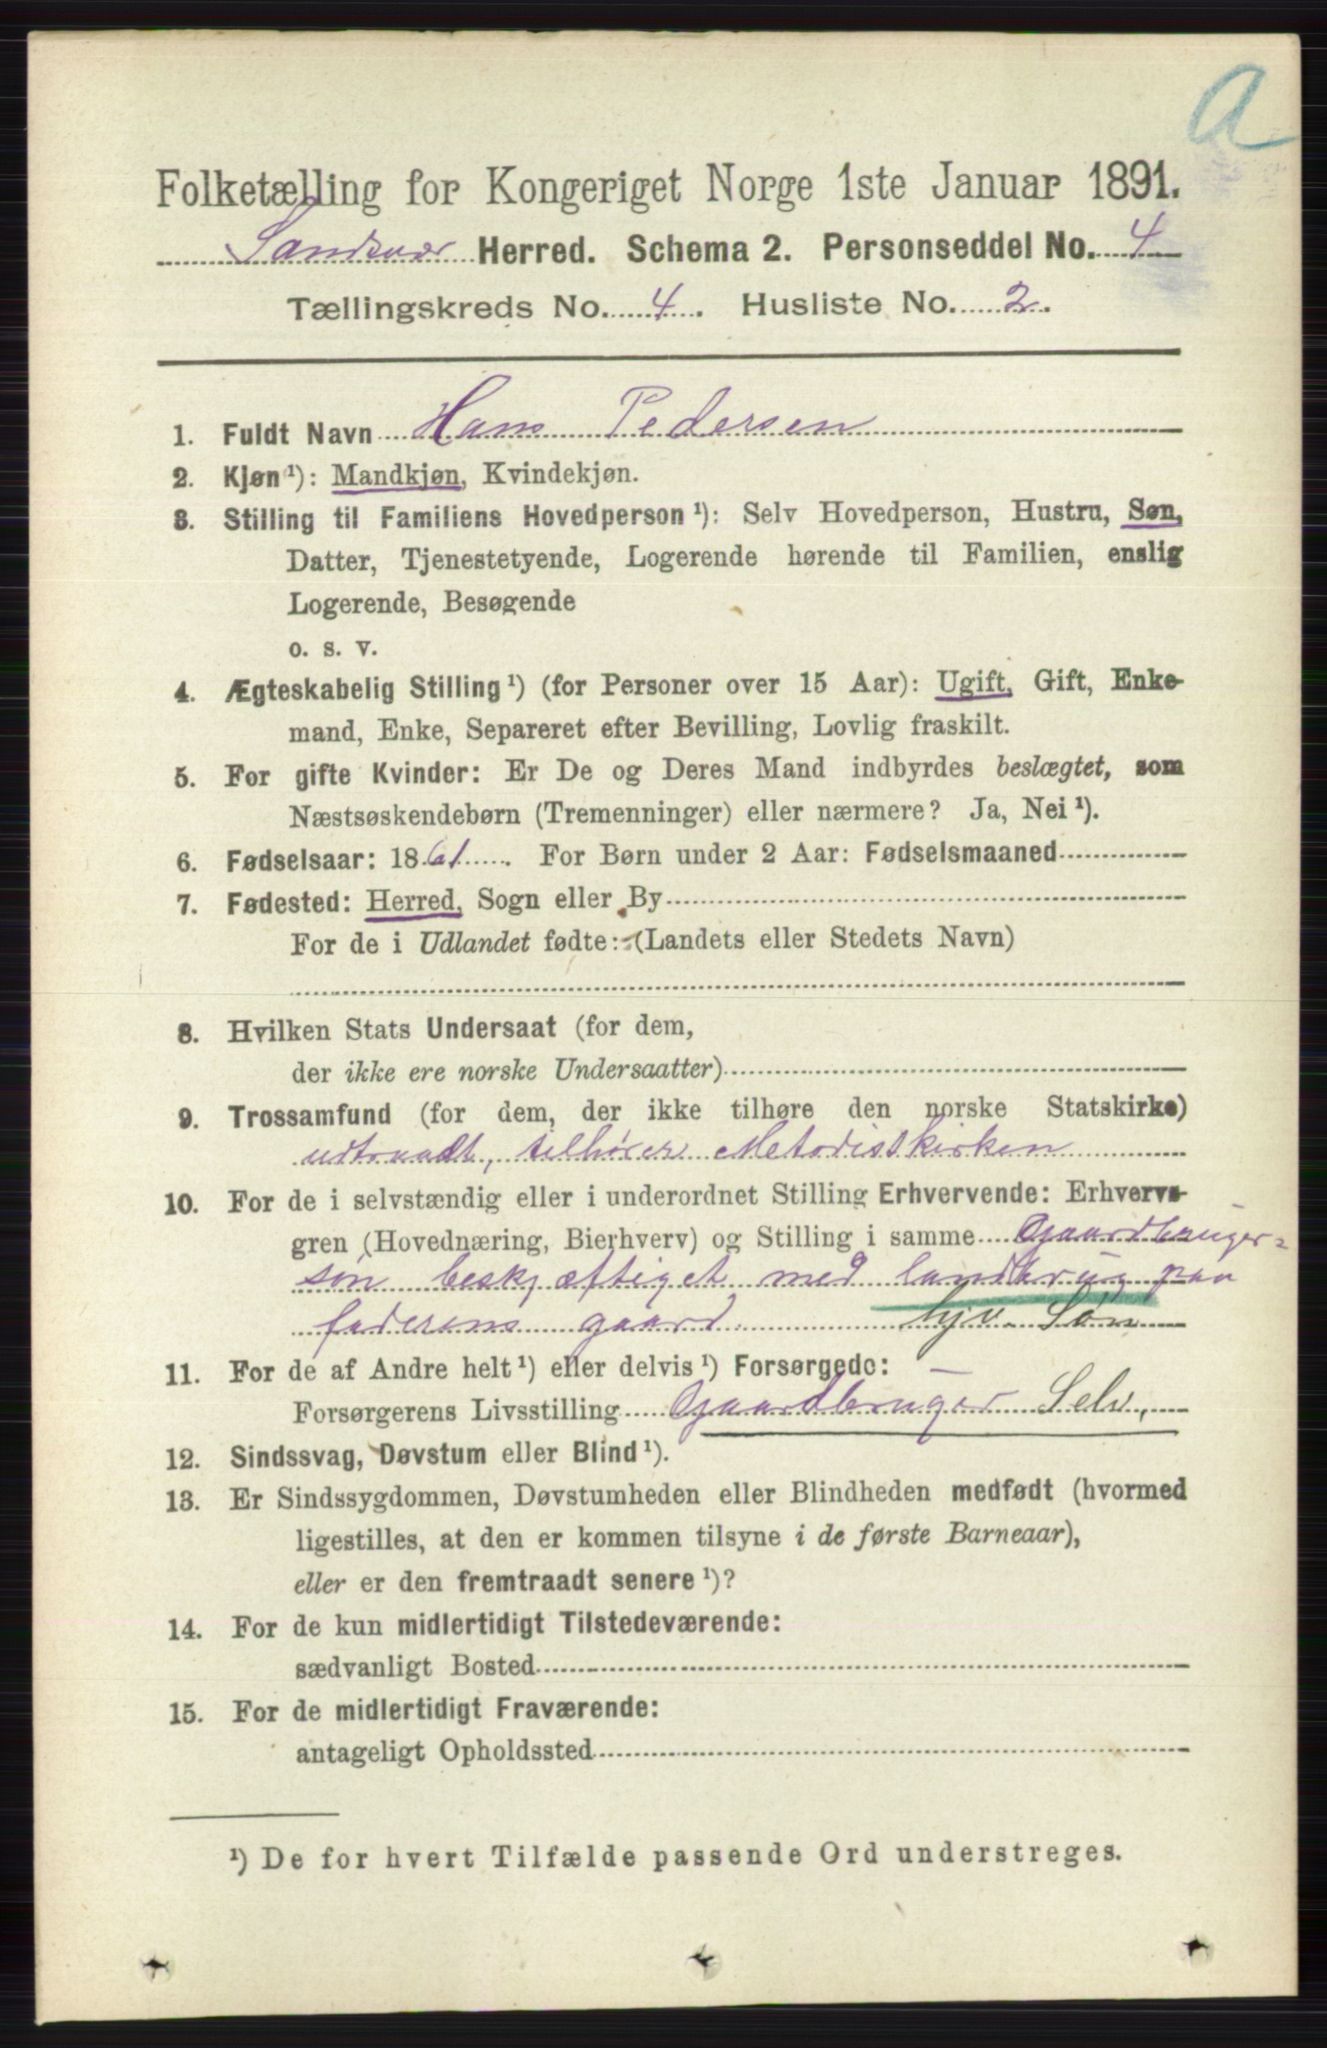 a
Folketælling for Kongeriget Norge 1ste Januar 1891.
Sandsvær Herred. Schema 2. Personseddel No. 4
Tællingskreds No. 4. Husliste No. 2.
1. Fuldt Navn Hans Pedersen
2. Kjøn ¹): Mandkjøn, Kvindekjøn.
3. Stilling til Familiens Hovedperson ¹): Selv Hovedperson, Hustru, Søn,
Datter, Tjenestetyende, Logerende hørende til Familien, enslig
Logerende, Besøgende
o. s. v.
4. Ægteskabelig Stilling ¹) (for Personer over 15 Aar): Ugift, Gift, Enke-
mand, Enke, Separeret efter Bevilling, Lovlig fraskilt.
5. For gifte Kvinder: Er De og Deres Mand indbyrdes beslægtet, som
Næstsøskendebørn (Tremenninger) eller nærmere? Ja, Nei ¹).
6. Fødselsaar: 1861. For Børn under 2 Aar: Fødselsmaaned
7. Fødested: Herred, Sogn eller By
For de i Udlandet fødte: (Landets eller Stedets Navn)
8. Hvilken Stats Undersaat (for dem,
der ikke ere norske Undersaatter)
9. Trossamfund (for dem, der ikke tilhøre den norske Statskirke)
udtraadt, tilhører Metodistkirken
10. For de i selvstændig eller i underordnet Stilling Erhvervende: Erhvervs-
gren (Hovednæring, Bierhverv) og Stilling i samme Gaardbruger-
søn beskjæftiget med landbrug paa
faderens gaard. hjv. Søn
11. For de af Andre helt ¹) eller delvis ¹) Forsørgede: —
Forsørgerens Livsstilling Gaardbruger Selv.
12. Sindssvag, Døvstum eller Blind ¹).
13. Er Sindssygdommen, Døvstumheden eller Blindheden medfødt (hvormed
ligestilles, at den er kommen tilsyne i de første Barneaar),
eller er den fremtraadt senere ¹)?
14. For de kun midlertidigt Tilstedeværende:
sædvanligt Bosted
15. For de midlertidigt Fraværende:
antageligt Opholdssted
¹) De for hvert Tilfælde passende Ord understreges.